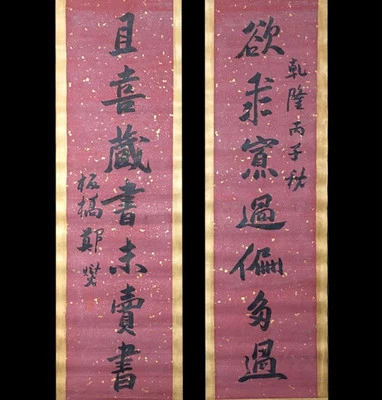 乾隆丙子秋
欲求寡過偏多過
且喜藏書未賣書
板橋鄭燮